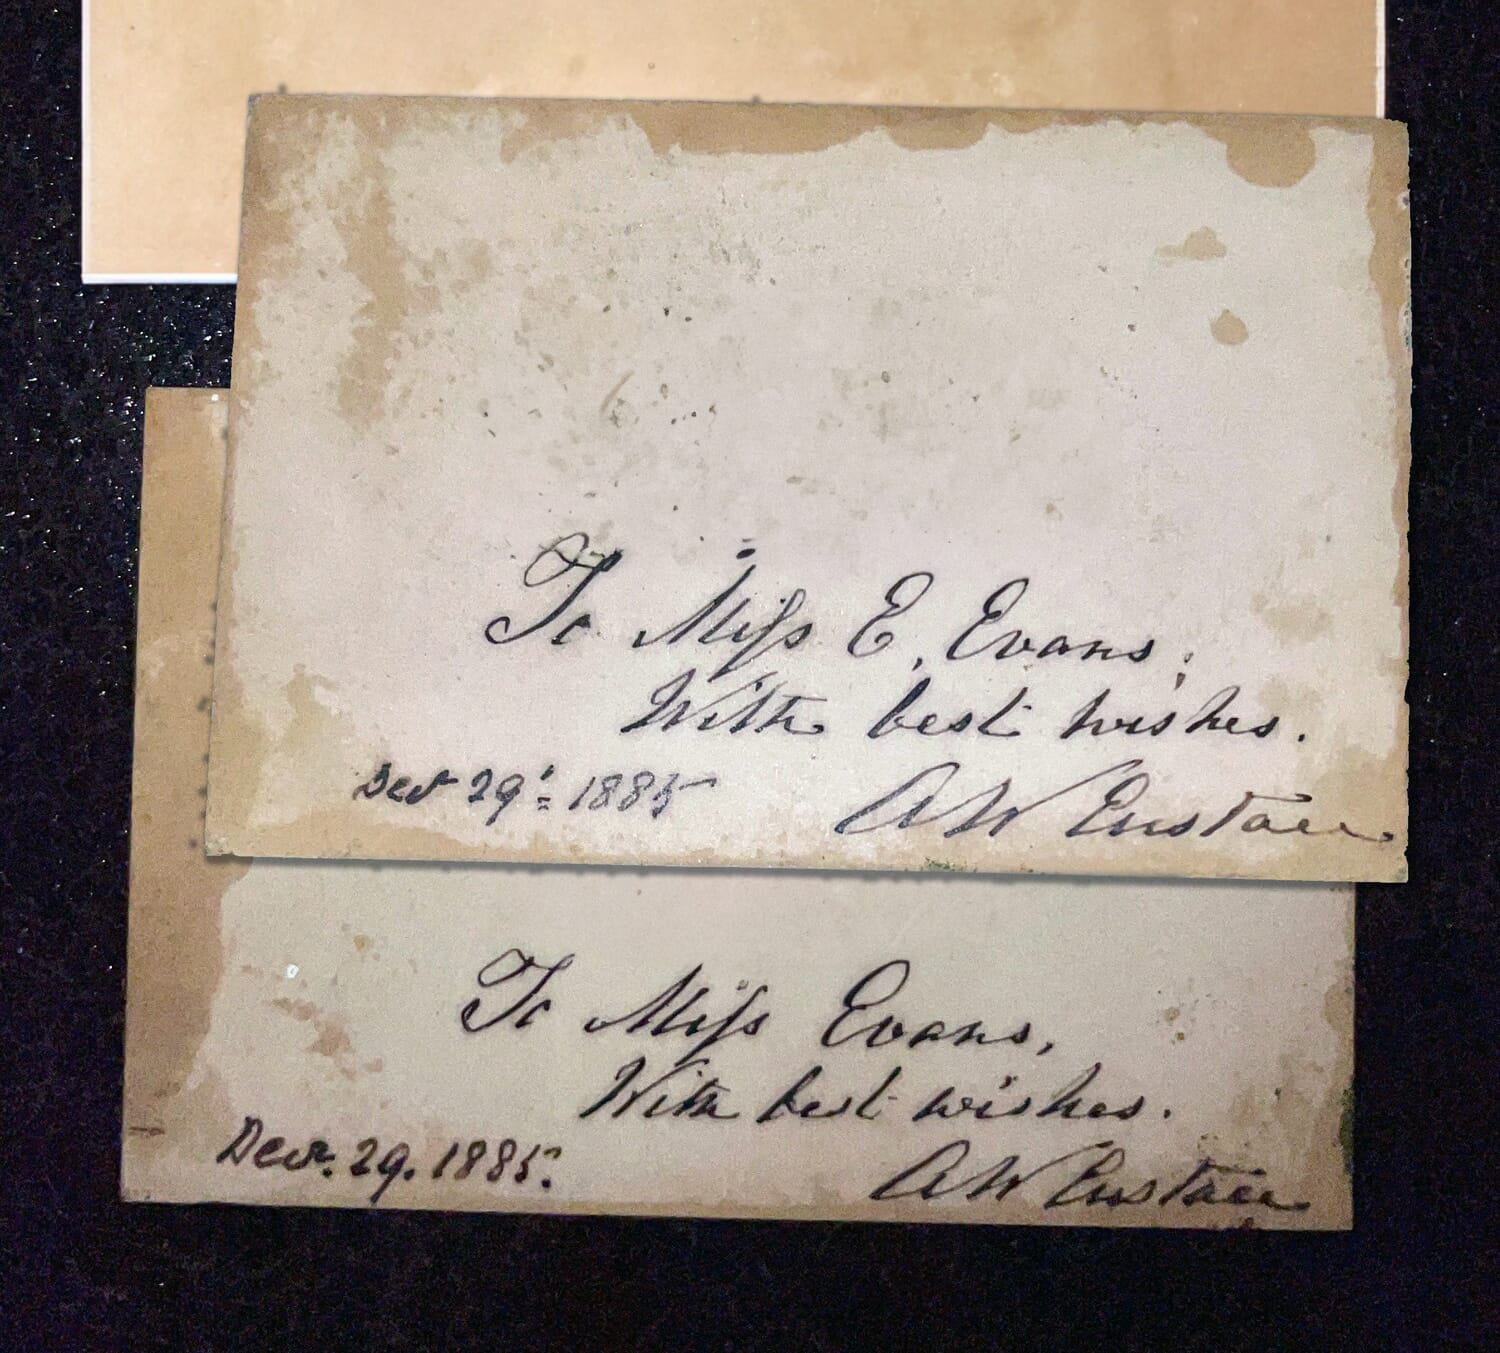 To Miss E. Evans,
With best wishes.
Decr 29' 1885
AW Eustace
To Miss Evans,
With best wishes.
Decr. 29. 1885.
AW Eustace